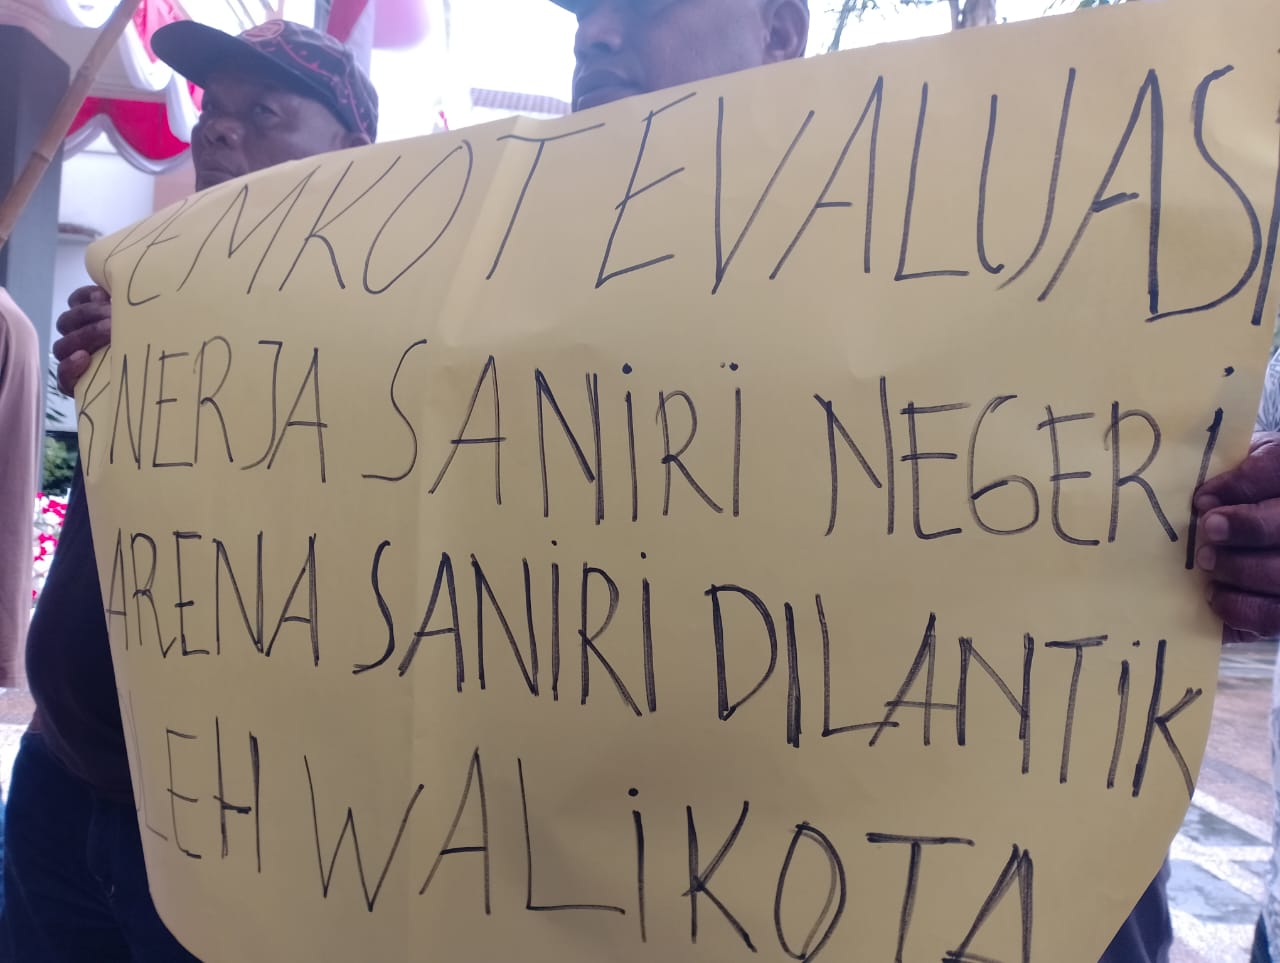 PEMKOT EVALUASI
KNERJA SANiRi NEGERi
ARENA SANiRi DILANTiK
OLEH WALiKOTA